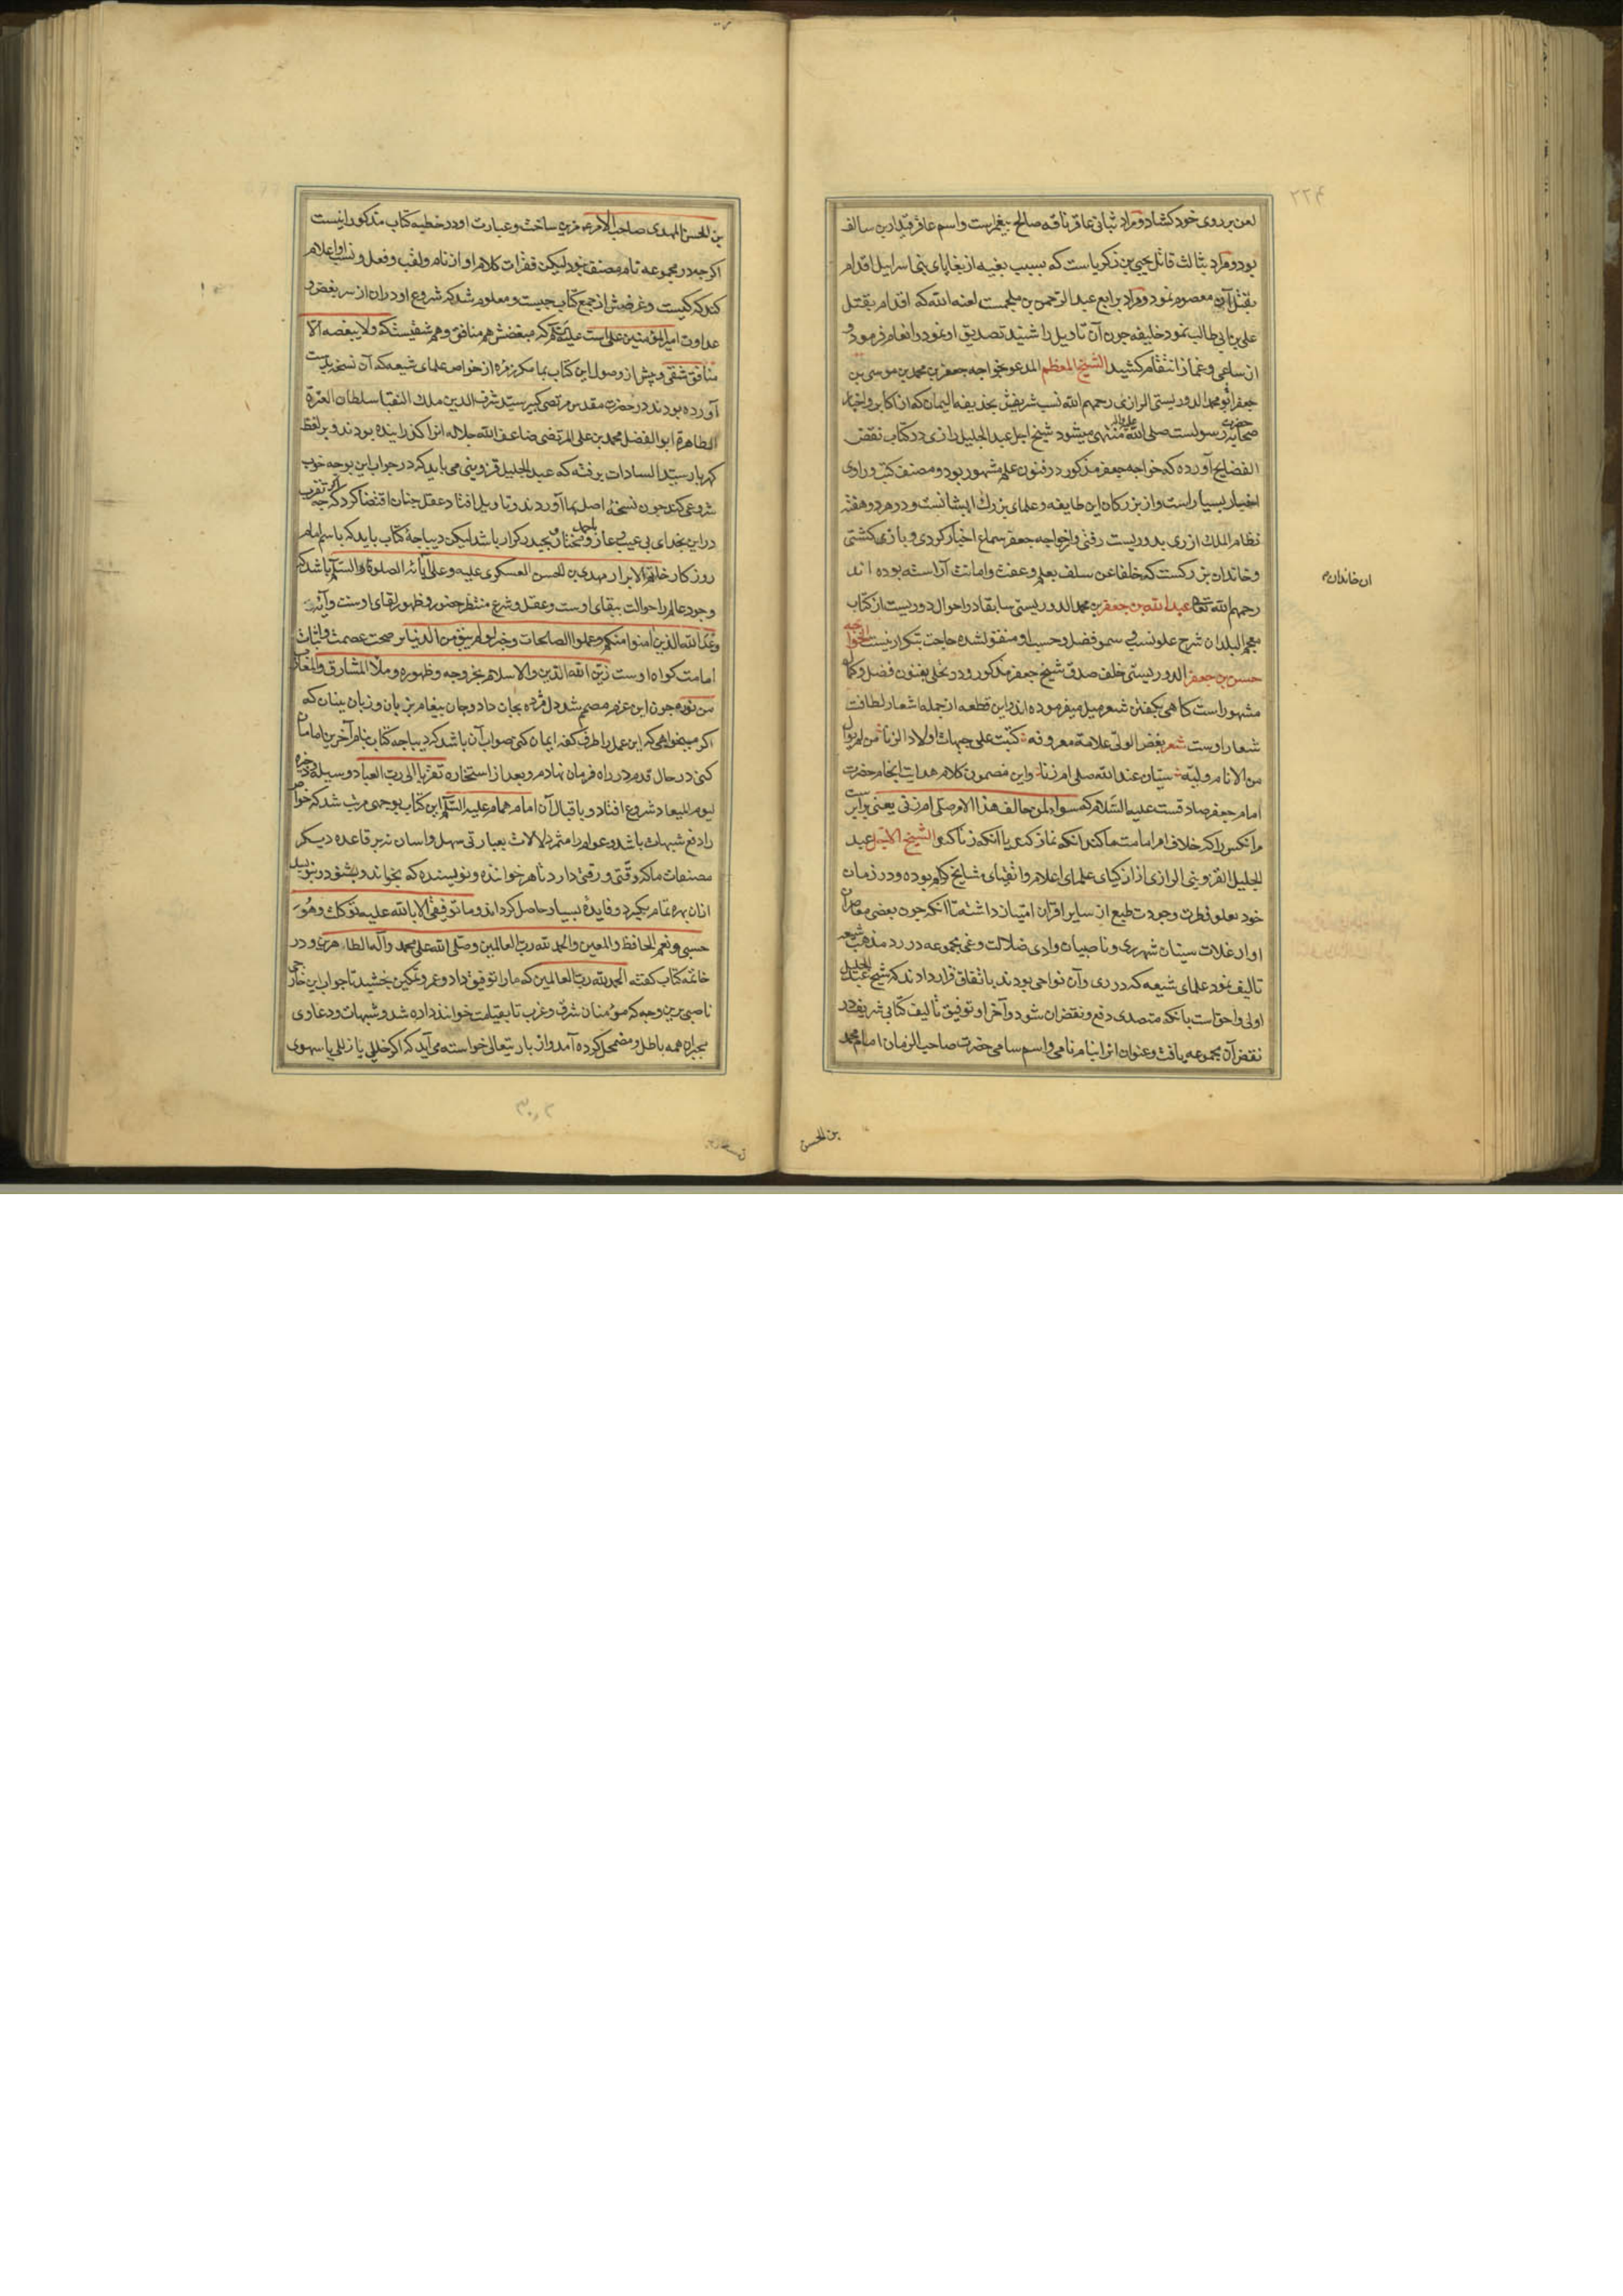 ۲۲۴
لعن بر روی خود کشاد و مراد بثانی عاقر ناقه صالح پیغمبرست و اسم عاقر قیدار بن سالف
بود و مراد بثالث قاتل یحیی بن زکریاست که بسبب بغیه از بغایای بنی اسرایل اقدام
بقتل آن معصوم نمود و مراد برابع عبد الرحمن بن ملجمست لعنه الله که اقدام بقتل
علی بن ابی طالب نمود خلیفه چون آن تاویل را شنید تصدیق او نمود و انعام فرمود و
از ساعی و غماز انتقام کشید الشیخ المعظم المدعو بخواجه جعفر بن محمد بن موسی بن
جعفر ابو محمد الدوریستی الرازی رحمهم الله نسب شریفش بحذیفه الیمان که از اکابر و اخیار
صحابه حضرت رسولست صلی الله علیه واله منتهی میشود شیخ اجل عبد الجلیل رازی در کتاب نقض
الفضایح آورده که خواجه جعفر مذکور در فنون علم مشهور بود و مصنف کتب و راوی
اخبار بسیار است و از بزرکان این طایفه و علمای بزرك ایشانست و در هر دو هفته
نظام الملك از ری بدوریست رفتی و از خواجه جعفر سماع اخبار کردی و بازی کشتی
و خاندان بزرکست که خلفا عن سلف بعلم و عفت و امانت آراسته بوده اند
ان خاندان
رحمهم الله تعالی عبد الله بن جعفر بن محمد الدوریستی سابقا در احوال دوریست از کتاب
معجم البلدان شرح علو نسب و سمو فضل و حسب او منقول شده حاجت بتکرار نیست الخواجه
حسن بن جعفر الدوریستی خلف صدق شیخ جعفر مذکور و در تحلی بفنون فضل و کمال
مشهور است کاهی بکفتن شعر میل میفرموده اند و این قطعه از جمله اشعار لطافت
شعار اوست شعر بغض الولی علامة معروفه کتبت علی جبهات اولاد الزنا من لم یوال
من الانام ولیه سیان عند الله صلی ام زنا و این مضمون کلام هدایت انجام حضرت
امام جعفر صادقست علیه السلام که سواء لمن خالف هذا الامر صلی ام زنی یعنی برابر است
مر آنکس را که خلاف امر امامت ما کند آنکه نماز کند یا آنکه زنا کند الشیخ الاجل عبد
الجلیل القزوینی الرازی از ازکیای علمای اعلام و اتقیای مشایخ کرام بوده و در زمان
خود بعلو فطرت و جودت طبع از سایر اقران امتیاز داشته تا آنکه چون بعضی معاصران
او از غلات سنیان شهر ری و ناصبیان وادی ضلالت و غی مجموعه در رد مذهب شیعه
تالیف نمود علمای شیعه که در ری و آن نواحی بودند باتفاق قرار دادند که شیخ عبد الجلیل
اولی و احق است بانکه متصدی دفع و نقض ان شود و آخر او توفیق تألیف کتابی شریف در
نقض آن مجموعه یافت و عنوان انرا بنام نامی و اسم سامی حضرت صاحب الزمان امام محمد
بن الحسن
بن الحسن المهدی صاحب الامر مزین ساخت و عبارت او در خطبه کتاب مذکور اینست
اکرچه در مجموعه نام مصنف نبود لیکن فقرات کلام او از نام و لقب و فعل و نسب او اعلام
کند که کیست و غرضش از جمع کتاب چیست و معلوم شد که شروع او دران از سر بغض و
عداوت امیر المؤمنین علی است علیه السلام که مبغضش هم منافق و هم شقیست که ولا یبغضه الا
منافق شقی و پیش از وصول این کتاب بما مکر زمره از خواص علمای شیعه که آن نسخه بدست
آورده بودند در حضرت مقدس مرتضی کبیر سید شرف الدین ملك النقبا سلطان العترة
الطاهرة ابو الفضل محمد بن علی المرتضی ضاعف الله جلاله انرا کذرانیده بودند و بر لفظ
کهربار سید السادات برفته که عبد الجلیل قزوینی می باید که در جواب این بوجه خوب
شروعی کند چون نسخهٔ اصل بما آوردند و تاویل افتاد عقل چنان اقتضا کرد که اکرچه تقرب
در این بخدای بی عیب و عار و باحمد مختار و بحیدر کرار باشد لیکن دیباجهٔ کتاب باید که باسم امام
روزکار خاتم الابرار مهدی بن الحسن العسکری علیه و علی آبائه الصلوة و السلم باشد که
وجود عالم را حوالت ببقای اوست و عقل و شرع منتظر حضور و ظهور لقای اوست و آیهٔ
وعد الله الذین آمنوا منکم و عملوا الصالحات و خبر لو لم یبق من الدنیا بر صحت عصمت و اثبات
امامت کواه اوست زین الله الدین و الاسلام بخروجه و ظهوره و ملأ المشارق و المغارب
من نوره چون این عزم مصمم شد دل مژده بجان داد و جان پیغام بزبان و زبان ببنان که
اکر میخواهی که این عمل را طرف کفه ایمان کنی صواب آن باشد که دیباجه کتاب بنام آخرین امامان
کنی در حال قدم در راه فرمان نهادم و بعد از استخاره تقربا الی رب العباد و سیلة و ذخیرة
لیوم المیعاد شروع افتاد و باقبال آن امام همام علیه السلم این کتاب بوجهی مرتب شد که خواص
را دفع شبهات باشد و عوام را مثمر دلالات بعبارتی سهل و اسان نه بر قاعده دیکر
مصنفات ما که دقتی و رقتی دارد تا هر خواننده و نویسنده که بخواند و بشنود و بنویسد
ازان بهره تمام بکیرد و فایدهٔ بسیار حاصل کرداند و ما توفیقی الا بالله علیه توکلت و هو
حسبی و نعم الحافظ و المعین و الحمد لله رب العالمین و صلی الله علی محمد و آله الطاهرین و در
خاتمه کتاب کفته الحمد لله رب العالمین که ما را توفیق داد و عمر و تمکین بخشید تا جواب این خارجی
ناصبی برین وجه که مومنان شرق و غرب تا بقیامت خوانند داده شد و شبهات و دعاوی
مجبران همه باطل و مضمحل کرده آمد و از باریتعالی خواسته می آید که اکر خللی یا زللی یا سهوی